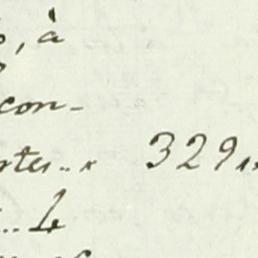 , à
con-
rtes..x 329..
... Le